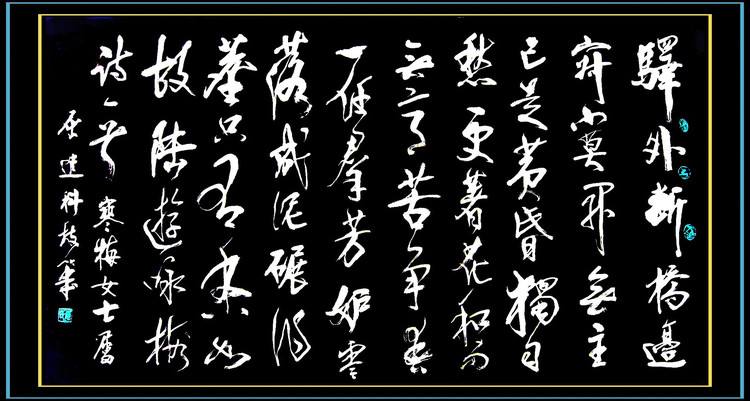 驛外断橋邊
寂寞開無主
已是黄昏獨自
愁更著和雨
無意苦争春
一任羣芳妒零
落成泥碾作
塵只有香如
故陸游詠梅
诗一首寒梅女士属